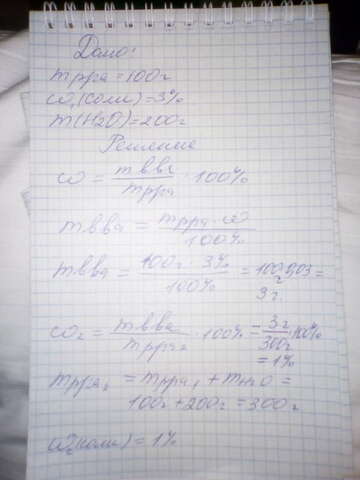 Дано:
mрра = 100г
ω₁(соли) = 3%
m(H2O) = 200г
Решение
ω = mвва / mрра · 100%
mвва = mрра · ω / 100%
mвва = 100г · 3% / 100% = 100·0,03 = 3г
ω₂ = mвва / mрра₂ · 100% = 3г / 300г · 100% = 1%
mрра₂ = mрра₁ + mH2O =
100г + 200г = 300г
ω₂(соли) = 1%